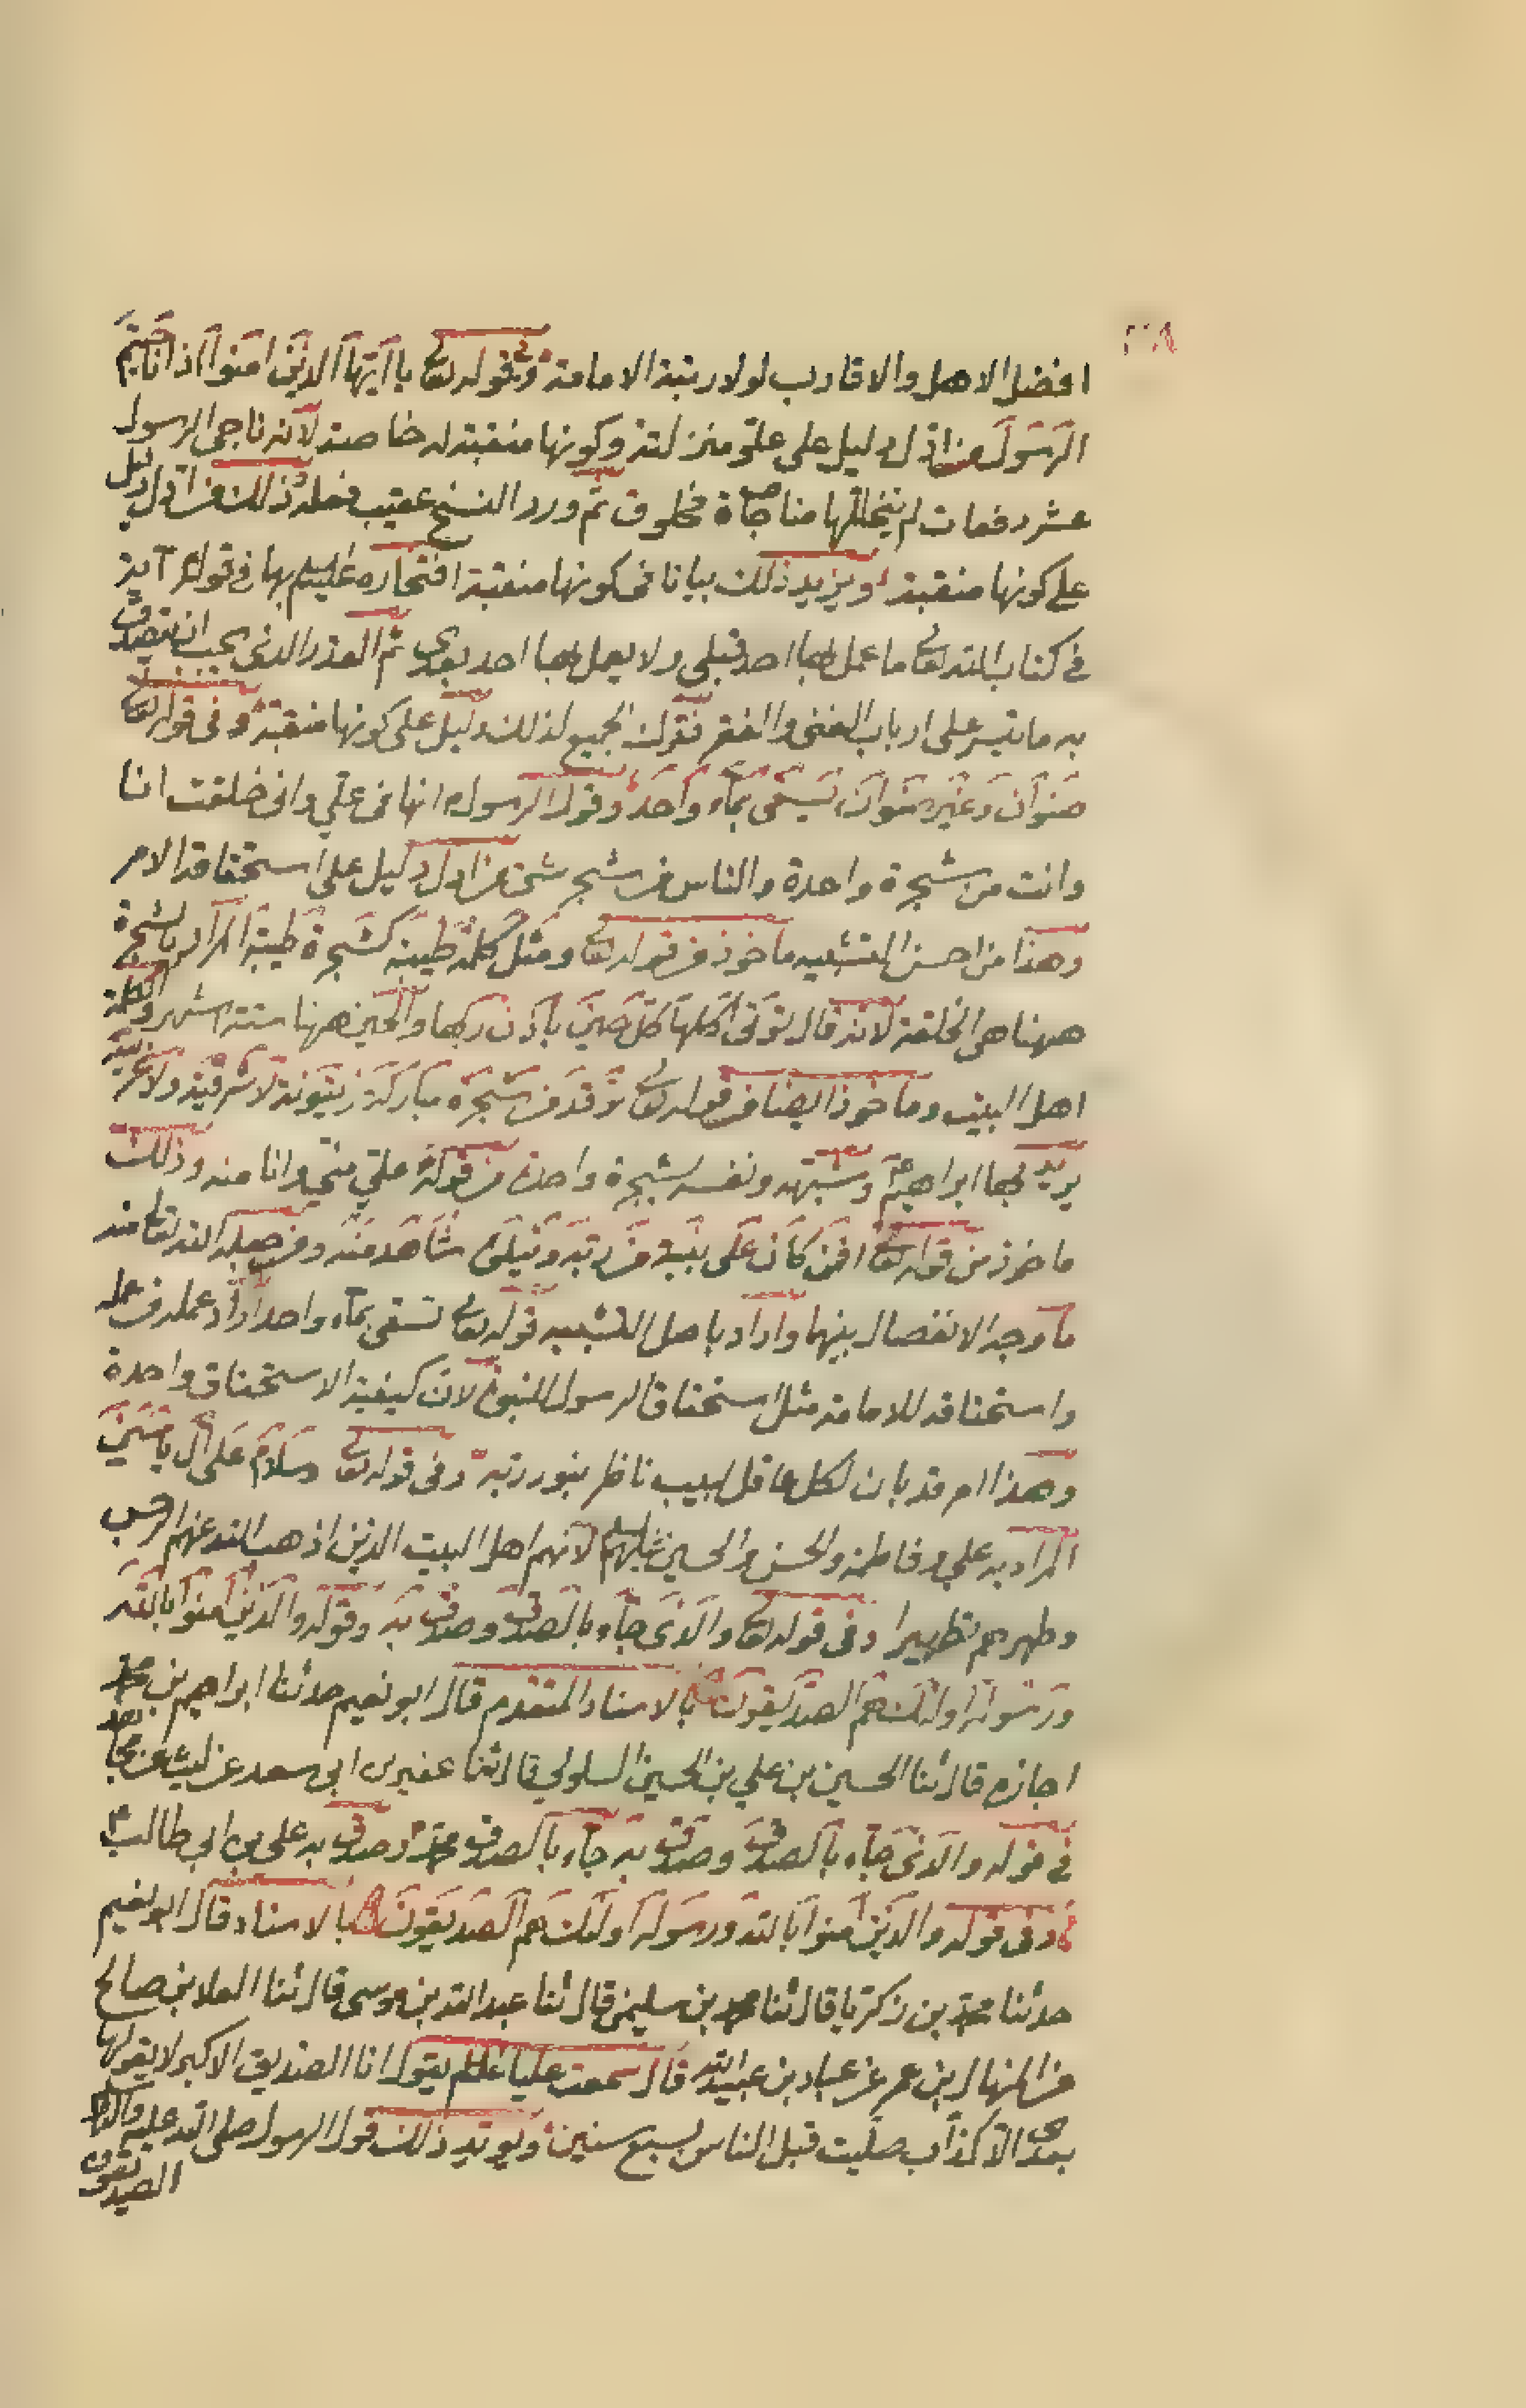 ٣٨
افضل الاهل والاقارب لولا رتبة الامامة وفي قوله تعالى يا ايها الذين امنوا اذا ناجيتم
الرسول من ادل دليل على علو منزلته وكونها منقبة له خاصة لانه ناجى الرسول
عشر دفعات لم يتخللها مناجاة مخلوق ثم ورد النسخ عقيب فعله ذلك من ادل دليل
على كونها منقبة ويزيد ذلك بيانا في كونها منقبة افتخاره عليه السلم بها في قوله آية
في كتاب الله تعالى ما عمل بها احد قبلي ولا يعمل بها احد بعدي ثم القدر الذي يجب ان يتصدق
به ما تيسر على ارباب الغنى والفقر فترك الجميع لذلك دليل على كونها منقبة وفي قوله تعالى
صنوان وغير صنوان يسقى بماء واحد وقول الرسول انها في علي واني خلقت انا
وانت من شجرة واحدة والناس من شجر شتى من ادل دليل على استحقاقه الامر
وهذا من احسن التشبيه ماخوذ من قوله تعالى ومثل كلمة طيبة كشجرة طيبة المراد بالشجرة
ههنا هي الخلقة لانه قال تؤتى اكلها كل حين باذن ربها والحين ههنا ستة اشهر والكلمة
اهل البيت وماخوذ ايضا من قوله تعالى توقد من شجرة مباركة زيتونة لا شرقية ولا غربية
يريد بها ابراهيم وشبهه ونفسه بشجرة واحدة من قوله علي مني وانا منه وذلك
ماخوذ من قوله تعالى افمن كان على بينة من ربه ويتلوه شاهد منه ومن جعله الله تعالى منه
ما وجه الانفصال بينهما واراد باصل التشبيه قوله تعالى تسقى بماء واحد اراد عمله من عمله
واستحقاقه للامامة مثل استحقاق الرسول للنبوة لان كيفية الاستحقاق واحدة
وهذا امر قد بان لكل عاقل لبيب ناظر بنور ربه وفي قوله تعالى وسلام على آل ياسين
المراد به علي وفاطمة والحسن والحسين عليهم السلم لانهم اهل البيت الذين اذهب الله عنهم الرجس
وطهرهم تطهيرا وفي قوله تعالى والذي جاء بالصدق وصدق به وقوله والذين امنوا بالله
ورسوله اولئك هم الصديقون بالاسناد المتقدم قال ابو نعيم حدثنا ابراهيم بن محمد
اجازه قال ثنا الحسين بن علي بن الحسين السلولي قال ثنا ابي سعد عن ليث عن مجاهد
في قوله والذي جاء بالصدق وصدق به جاء بالصدق محمد وصدق به علي بن ابي طالب
وفي قوله والذين امنوا بالله ورسوله اولئك هم الصديقون بالاسناد قال ابو نعيم
حدثنا محمد بن زكريا قال ثنا محمد بن سليمن قال ثنا عبد الله بن موسى قال ثنا العلا بن صالح
عن المنهال بن عمر عن عباد بن عبد الله قال سمعت عليا عليه السلم يقول انا الصديق الاكبر لا يقولها
بعدي الا كذاب صليت قبل الناس بسبع سنين ويؤيد ذلك قول الرسول صلى الله عليه واله
الصديقون